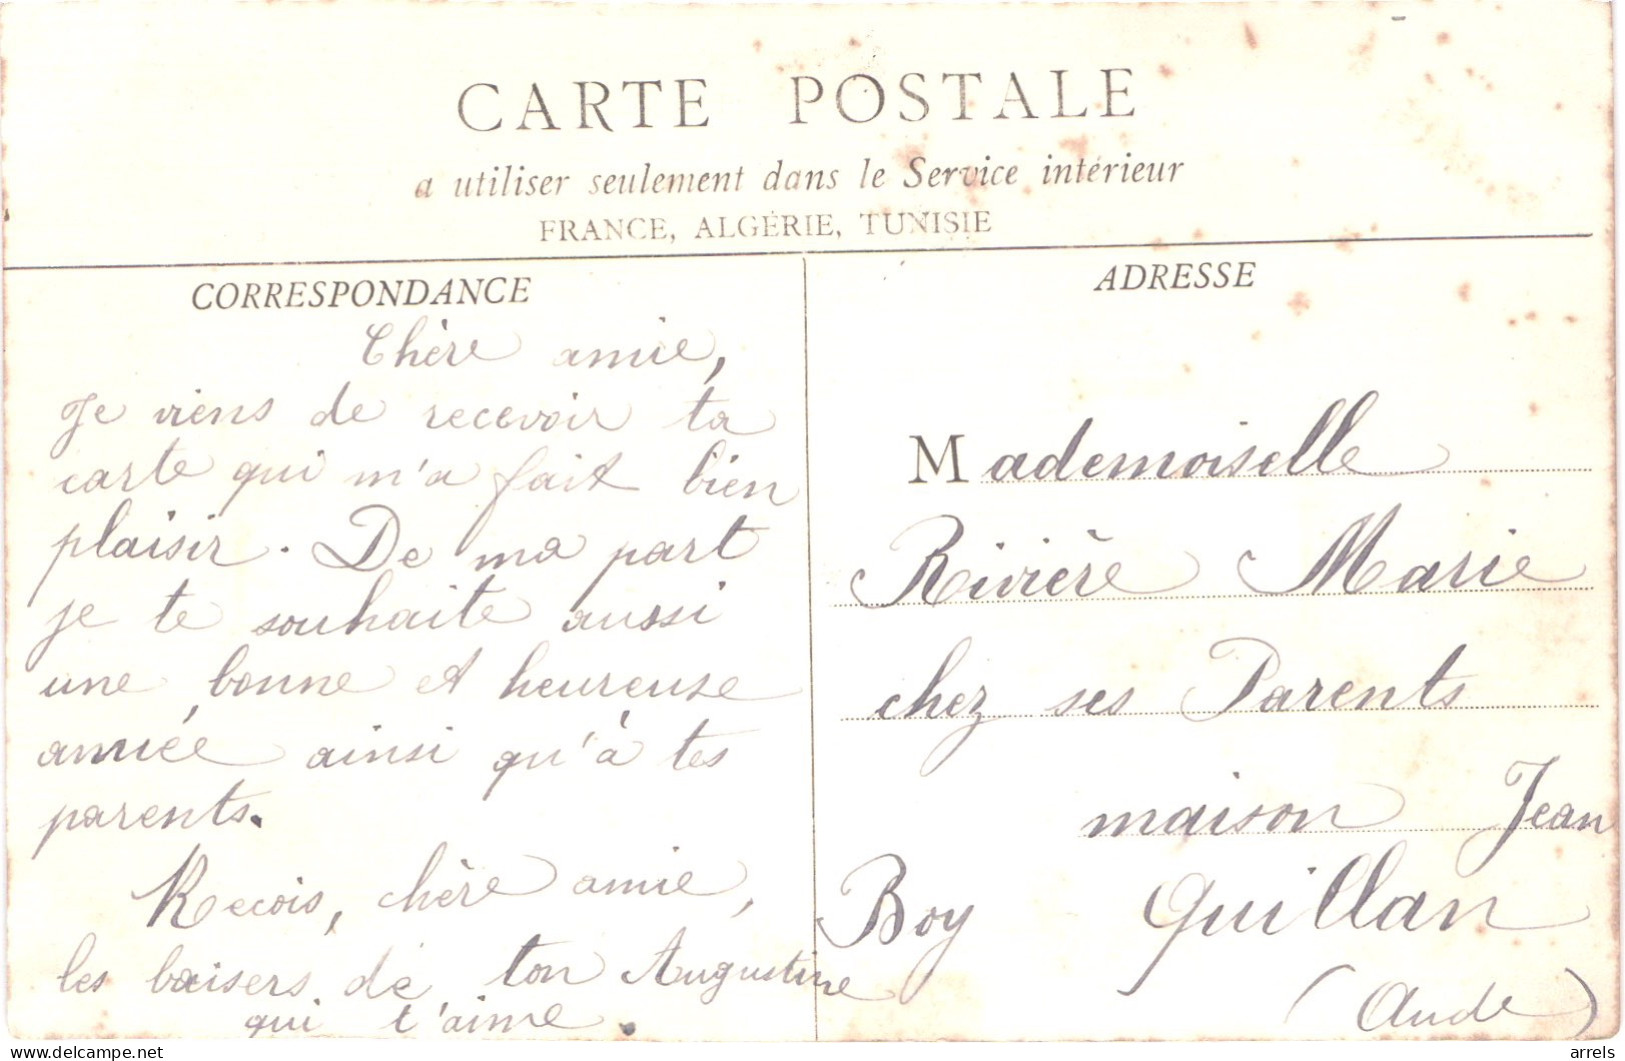 CARTE POSTALE
a utiliser seulement dans le Service intérieur
FRANCE, ALGÉRIE, TUNISIE
CORRESPONDANCE
Chère amie,
Je viens de recevoir ta
carte qui m'a fait bien
plaisir. De ma part
je te souhaite aussi
une bonne et heureuse
année ainsi qu'à tes
parents.
Recois, chère amie,
les baisers de ton Augustine
qui t'aime.
ADRESSE
Mademoiselle
Rivière Marie
chez ses Parents
maison Jean
Boy Quillan
(Aude)
delcampe.net
arrels